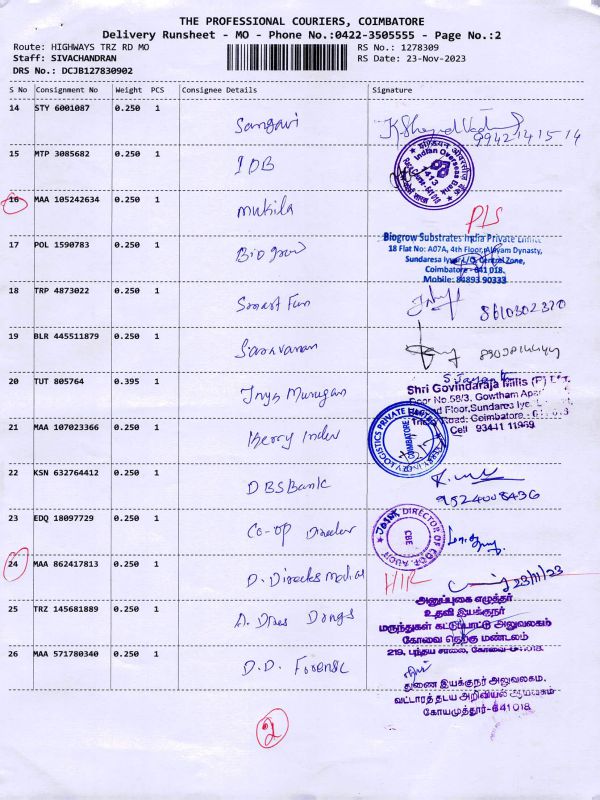 THE PROFESSIONAL COURIERS, COIMBATORE
Delivery Runsheet - MO - Phone No.:0422-3505555 - Page No.:2
Route: HIGHWAYS TRZ RD MO
RS No.: 1278309
Staff: SIVACHANDRAN
RS Date: 23-Nov-2023
DRS No.: DCJB127830902
S No Consignment No Weight PCS Consignee Details Signature
14 STY 6001087 0.250 1 Sangavi
9942141514
15 MTP 3085682 0.250 1 IOB
Indian Overseas Bank
16 MAA 105242634 0.250 1 Mukila
P/S
17 POL 1590783 0.250 1 Bio grow
Biogrow Substrates India Private Limited
18 Flat No: A07A, 4th Floor, Alayam Dynasty,
Sundaresa Iyer L/O, Central Zone,
Coimbatore - 641 018.
Mobile: 84893 90333
18 TRP 4873022 0.250 1 Smart Fun
8610302320
19 BLR 445511879 0.250 1 Saravanan
20 TUT 805764 0.395 1 Murugan
Shri Govindaraja Mills (P) Ltd.
Door No.58/3, Gowtham Apar
Floor, Sundares Iye
Road, Coimbatore
Cell 93441 11969
21 MAA 107023366 0.250 1 Kerry Indev
KERRY INDEV LOGISTICS PRIVATE LIMITED
COIMBATORE
22 KSN 632764412 0.250 1 DBS Bank
9524008436
23 EDQ 18097729 0.250 1 Co-op Director
JOINT DIRECTOR OF COOP. AUDIT
CBE
24 MAA 862417813 0.250 1 D. Director Medical
H/R
23/11/23
25 TRZ 145681889 0.250 1 A. Dires Drugs
அனுப்புகை எழுத்தர்
உதவி இயக்குநர்
மருந்துகள் கட்டுப்பாட்டு அலுவலகம்
கோவை தெற்கு மண்டலம்
219, பந்தய சாலை, கோவை-641018.
26 MAA 571780340 0.250 1 D.D. Forensc
துணை இயக்குநர் அலுவலகம்,
வட்டாரத் தடய அறிவியல் ஆய்வகம்
கோயமுத்தூர்-641018
2